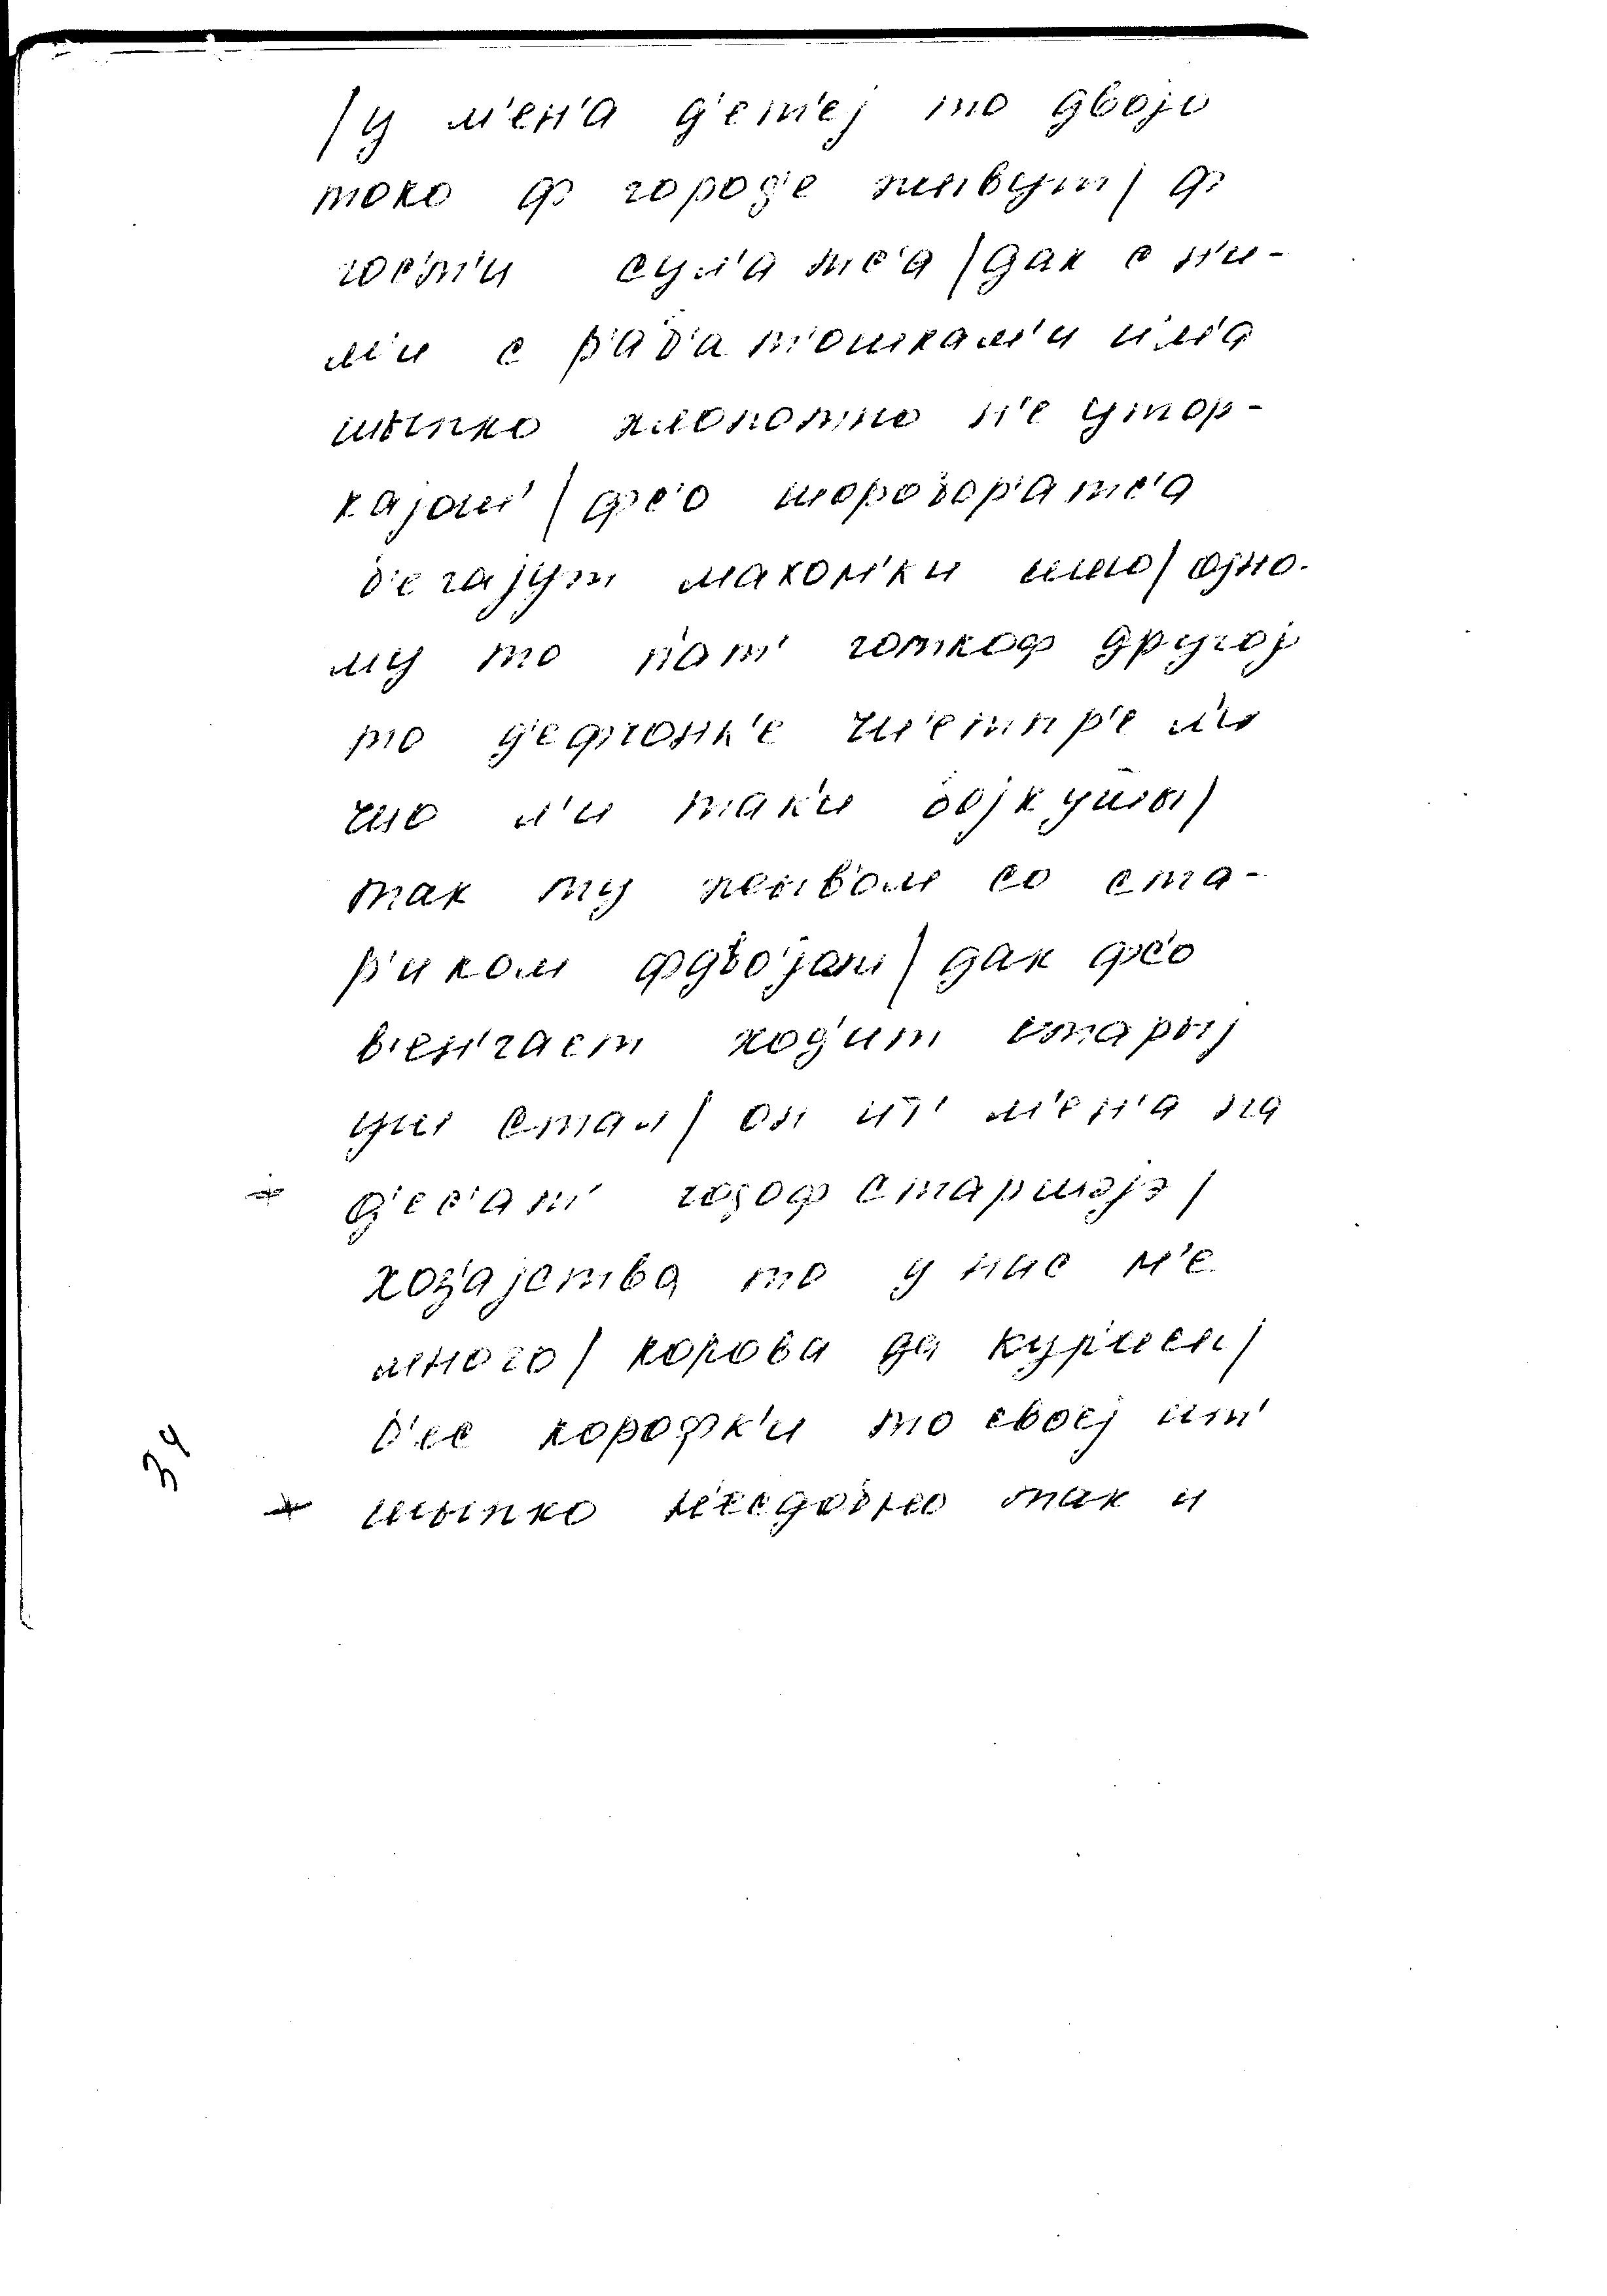 /у м'ен'а д'ет'еј то двојо
токо ф город'е жывут/ ф
гос'т'и сул'а тс'а /дак с н'и-
м'и с р'аб'а т'ошкам'и им'а
шыпко хлопотно н'е утор-
кајош'/ фс'о шоробор'а тс'а
б'егајут махон'ки ишо/ одно-
му то п'ат'готкоф другој
то д'ефчонк'е
што л'и так'и бојкушшы/
так ту жыв'ом со ста-
р'иком фдво'јом/ дак фс'о
в'ен'гает ход'ит старыј
уш стал/ он ит' м'ен'а на
д'ес'ат' годоф старшэјэ/
хоз'ајства то у нас н'е
много/ корова да кур'иен/
б'ес корофк'и то своеј ит'
шыпко н'есдобно так и
34